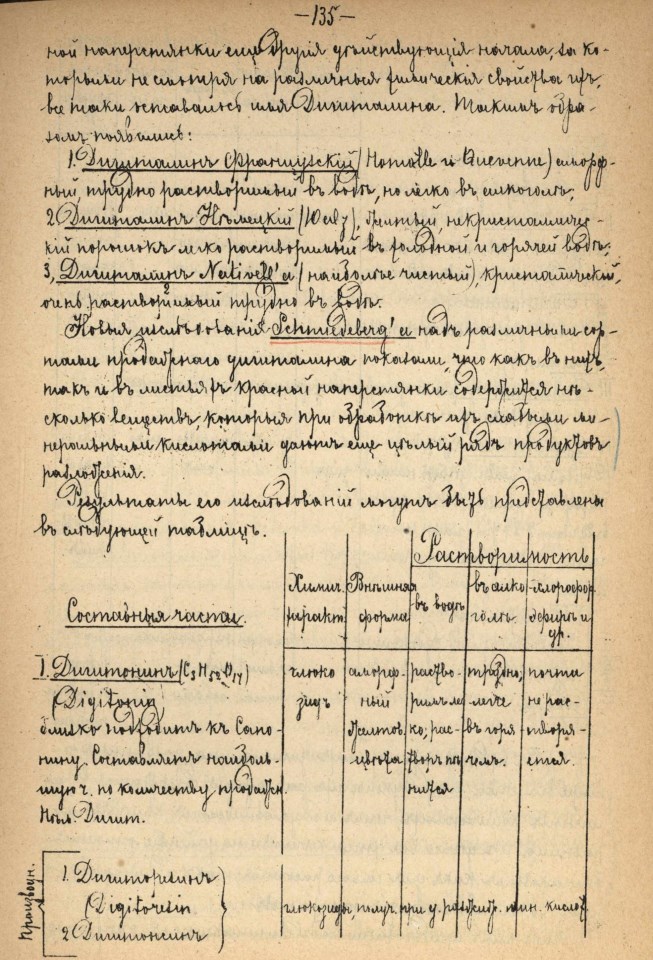 —135—
ной наперстянки еще другія дѣйствующія начала, за ко-
торыми не смотря на различныя химическія свойства ихъ,
все таки оставалось имя Дигиталина. Такимъ обра-
зомъ появились:
1. Дигиталинъ Французскій (Homolle и Quevenne) аморф-
ный, трудно растворимый въ водѣ, но легко въ алкоголѣ;
2 Дигиталинъ Нѣмецкій желтый, некристалличес-
кій порошокъ легко растворимый въ холодной и горячей водѣ;
3, Дигиталинъ Nativell'а (наиболѣе чистый), кристаллическій,
очень растворимый трудно въ водѣ.
Новыя изслѣдованія Schmiedeberg'а надъ различными сор-
тами продажнаго дигиталина показали, что какъ въ нихъ,
такъ и въ листьяхъ красной наперстянки содержится нѣ-
сколько веществъ которыя при обработкѣ ихъ слабыми ми-
неральными кислотами даютъ еще цѣлый рядъ продуктовъ
разложенія.
Результаты его изслѣдованій могутъ быть представлены
въ слѣдующей таблицѣ.
Растворимость
Составныя части.
Химич. характ.
Внѣшняя форма
въ водѣ
въ алкоголѣ
хлороформ эфирѣ и др.
I. Дигитонинъ (C H O)
(Digitonin)
близко подходитъ къ Сапо-
нину. Составляетъ наиболь-
шую ч. по количеству продажн
Нѣм. Дигит.
глюкозидъ
аморфный желтов. цвѣта
растворимъ легко; растворъ пѣнится
трудно; легче въ горячемъ.
почти не растворяется.
Произвдн.
1. Дигиторезинъ
(Digitoresin
2 Дигитонеинъ
глюкозиды получ. при разжиж. мин. кислот